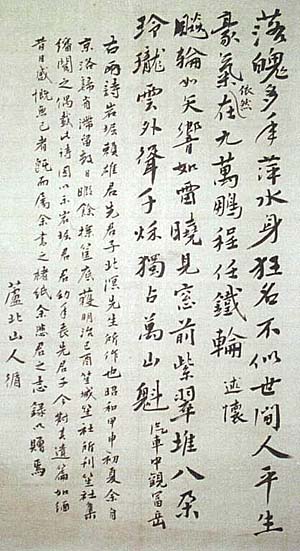 落魄多年萍水身狂名不似世間人平生
豪氣依然在九萬鵬程任鐵輪 述懷
飈輪如矢響如雷曉見窓前紫翠堆八朶
玲瓏雲外聳千秋獨占萬山魁 汽車中觀富岳
右兩詩岩賴雄君先君子北溟先生所作也昭和甲申初夏余自
京洛歸省滯留數日暇餘探筐底獲明治己酉城社所刊社集
繙閱之偶載此詩因以示岩君君幼年喪先君子今對其遺篇如緬
昔日感慨無已者既而屬余書之楮紙余愍君之志錄以贈焉
蘆北山人循